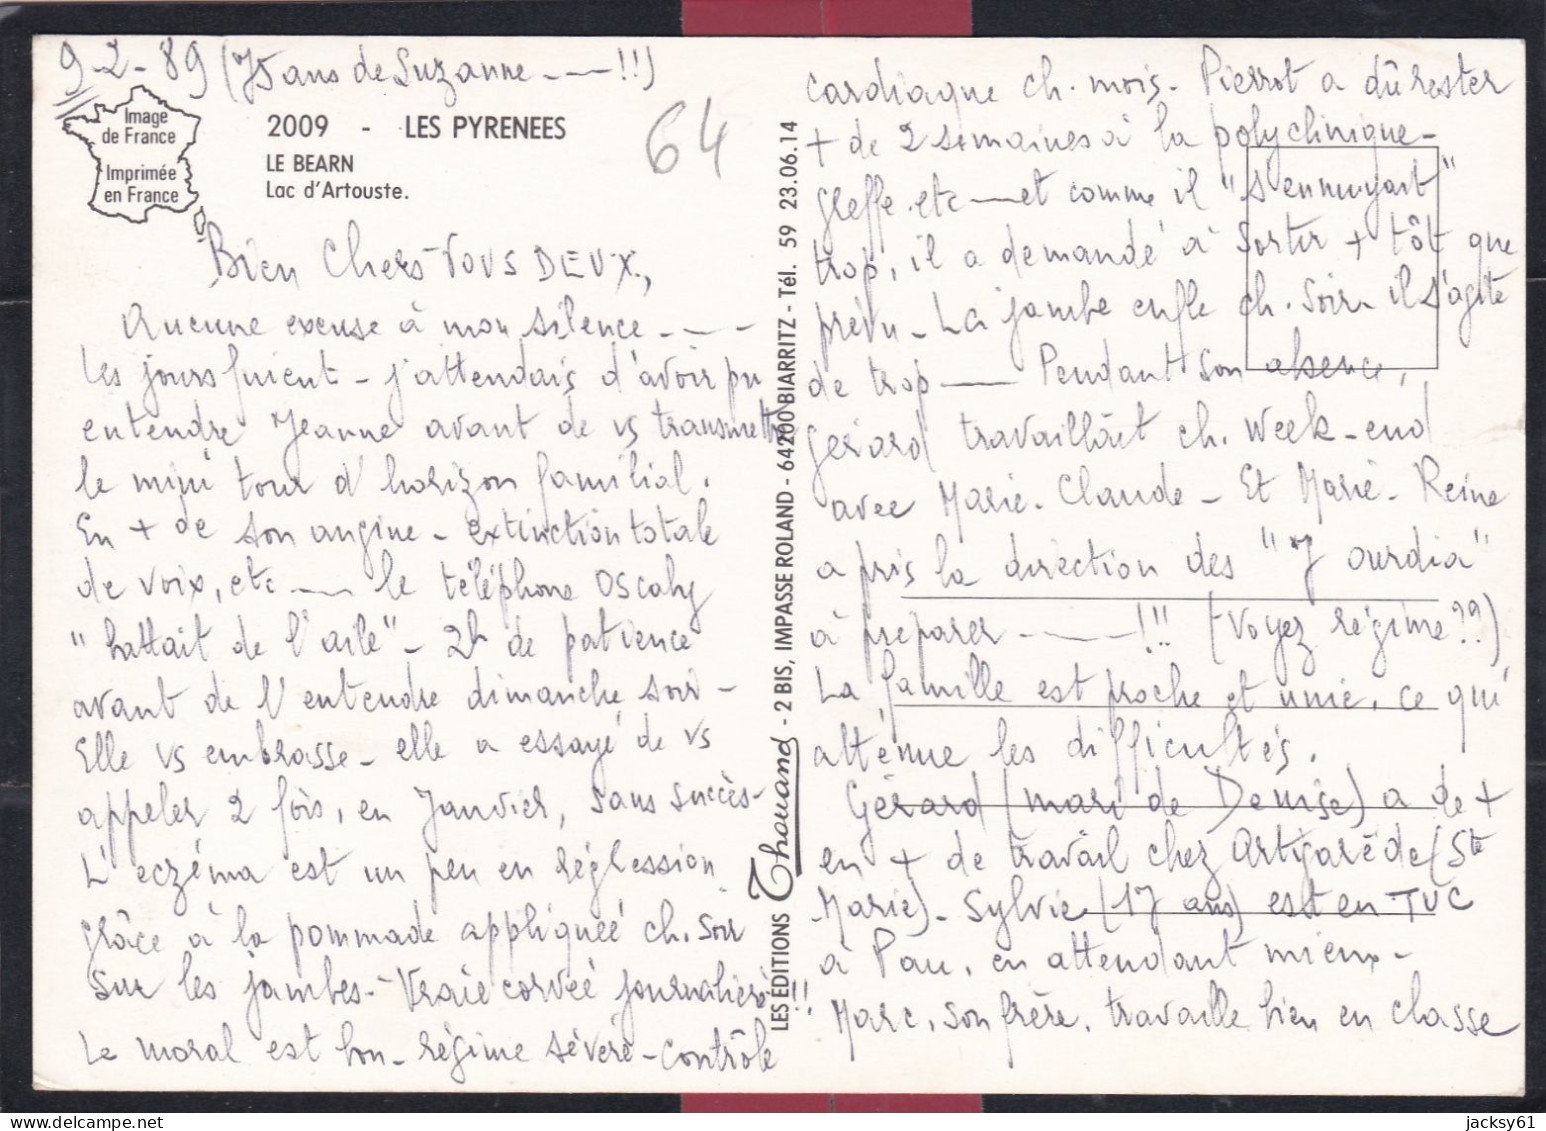 9-2-89 (75 ans de Suzanne - - - !!)
Image
de France
Imprimée
en France
2009 - LES PYRENEES
LE BEARN
Lac d'Artouste.
64
Bien Chers Vous DEUX,
Aucune excuse à mon silence - - -
Les jours fuient - j'attendais d'avoir pu
entendre Jeanne avant de vs transmettre
le mini tour d'horizon familial.
En + de son angine - extinction totale
de voix, etc --- le téléphone Oscaby
"battait de l'aile" - 2h de patience
avant de l'entendre dimanche soir -
Elle vs embrasse - elle a essayé de vs
appeler 2 fois, en Janvier, sans succès -
L'eczéma est un peu en régression
grâce à la pommade appliqueé ch. soir
sur les jambes - Vraie corveé journalière !!!
Le moral est bon - régime sévère - contrôle
LES EDITIONS Thouand - 2 BIS, IMPASSE ROLAND - 64200 BIARRITZ - Tél. 59 23.06.14
cardiaque ch. mois - Pierrot a dû rester
+ de 2 semaines à la polyclinique -
greffe. etc --- et comme il "s'ennuyait"
trop, il a demandé à sortir + tôt que
prévu - La jambe enfle ch. soir - il s'agite
de trop --- Pendant son absence,
Gérard travaillait ch. week-end
avec Marie-Claude - Et Marie-Reine
a pris la direction des "Jourdia"
à préparer --- !!! (Voyez régime ??)
La famille est proche et unie, ce qui
atténue les difficultés.
Gérard (mari de Denise) a de +
en + de travail chez Artigarède (Ste
Marie) - Sylvie (17 ans) est en TUC
à Pau, en attendant mieux -
Marc, son frère, travaille bien en classe
jacksy61